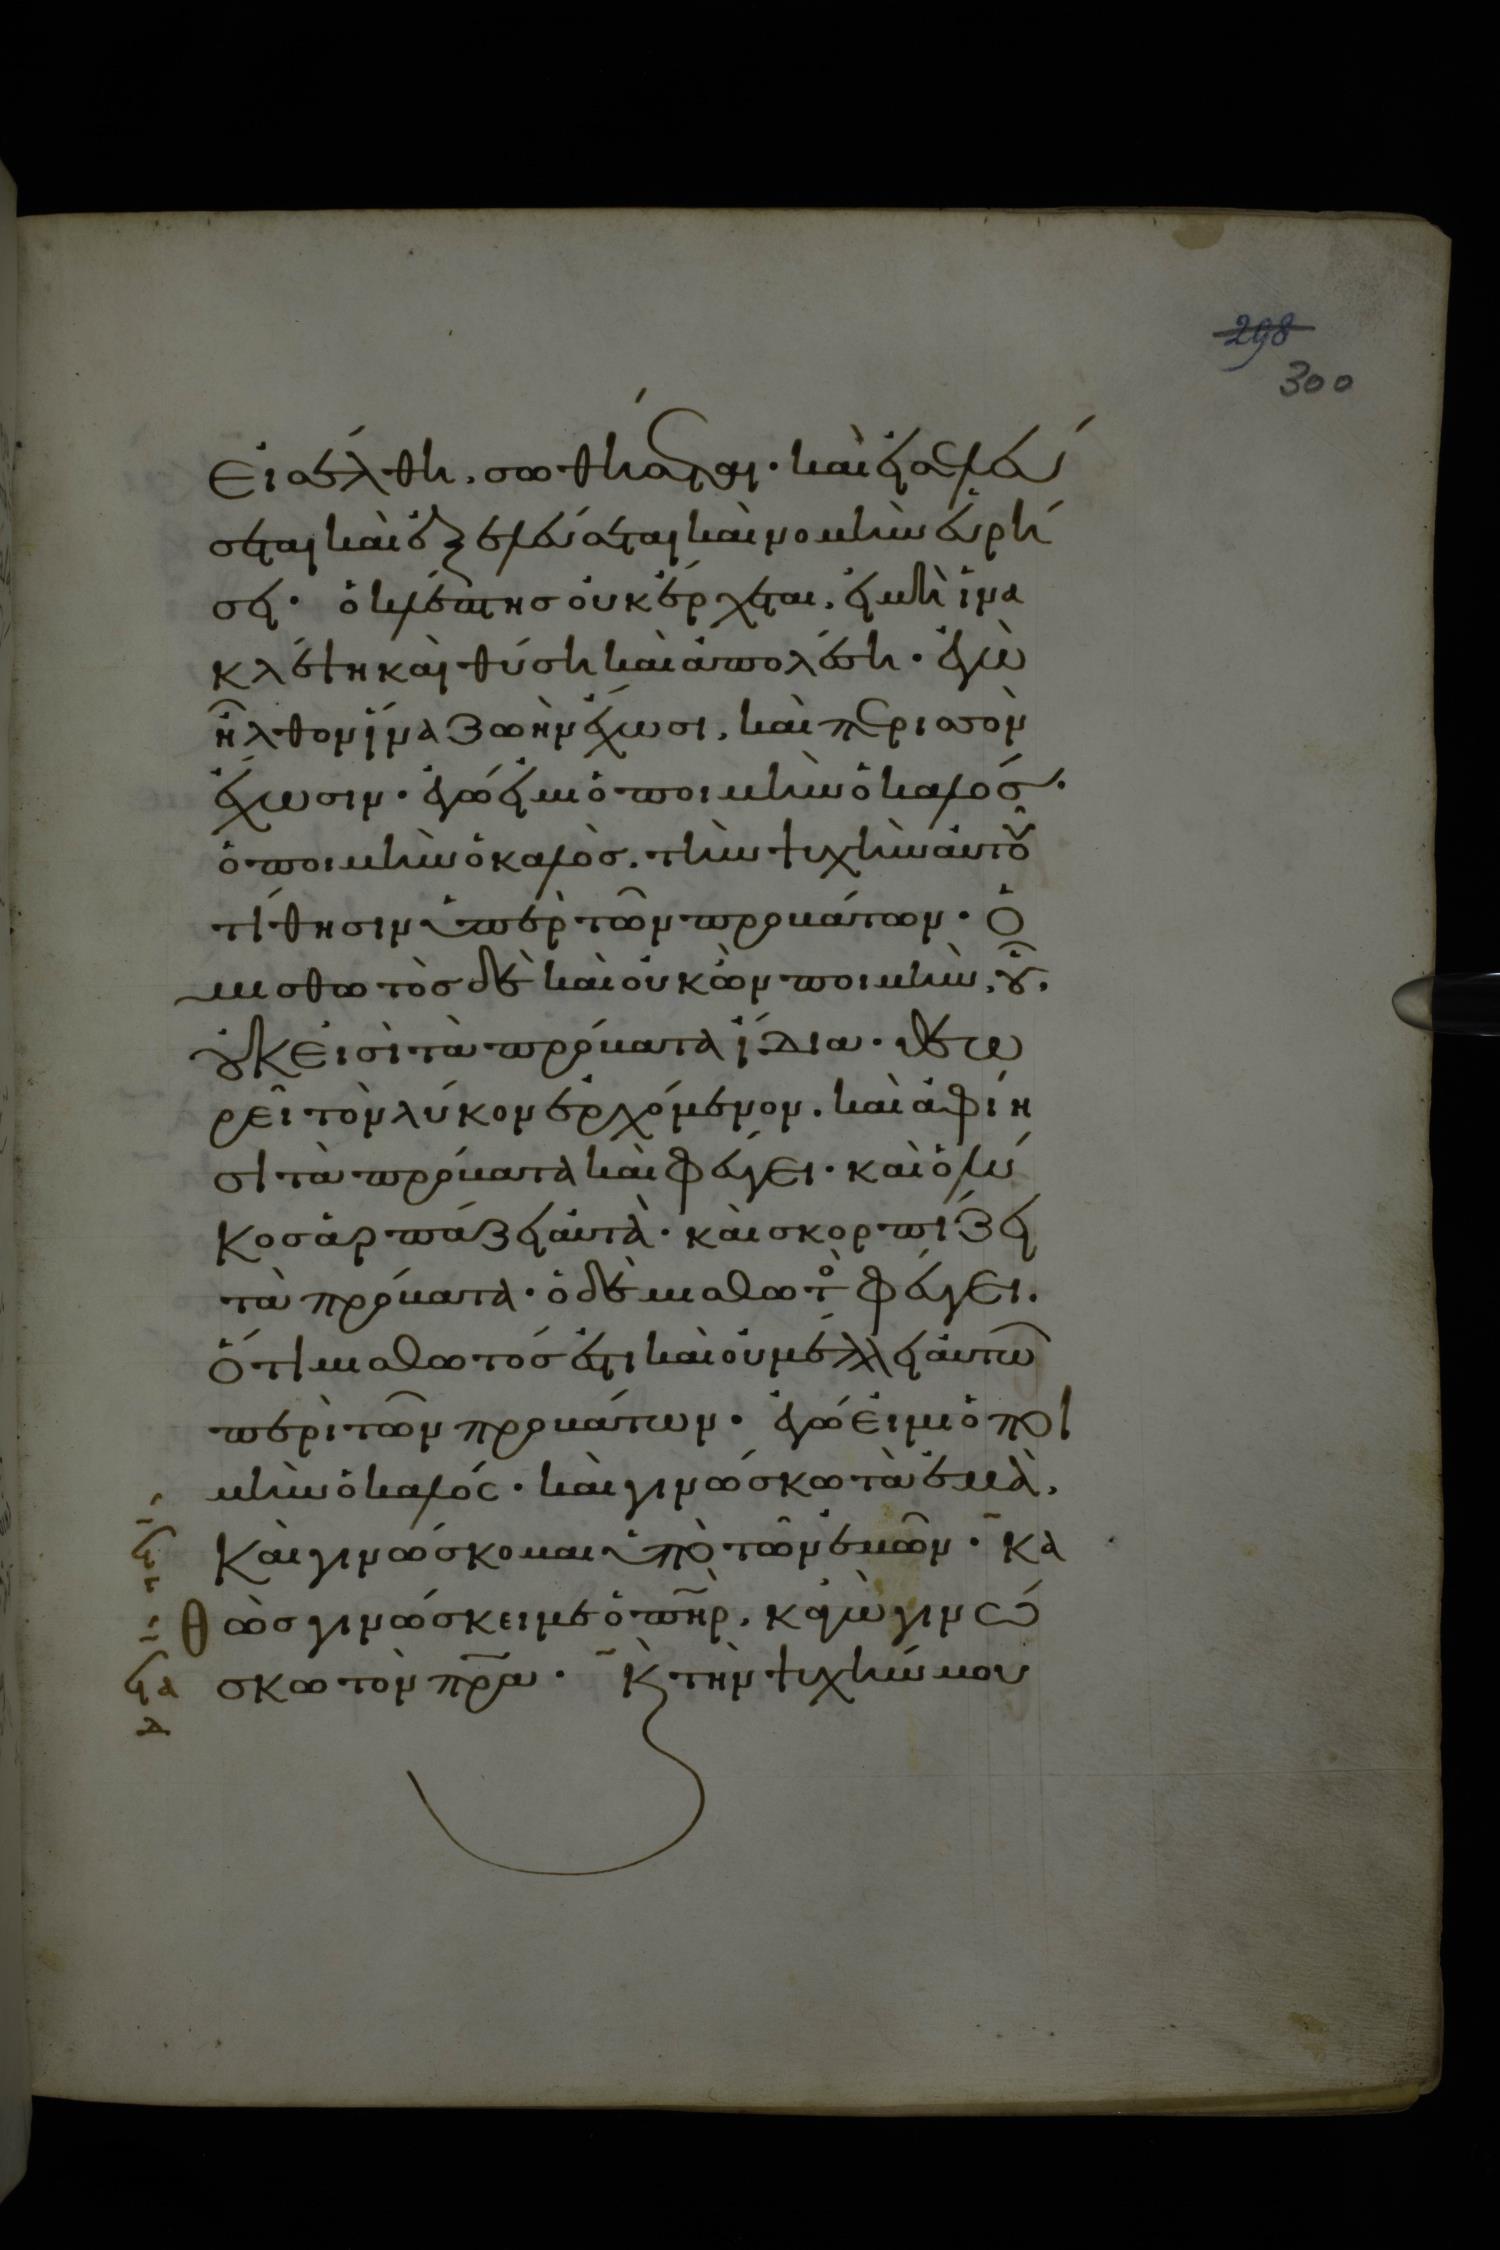 298
300
εἰσέλθη, σωθήσεται· καὶ εἰσελεύ
σεται καὶ ἐξελεύσεται καὶ νομὴν εὑρή
σει· ὁ κλέπτης οὐκ ἔρχεται, εἰ μὴ ἵνα
κλέψη καὶ θύση καὶ ἀπολέση· ἐγὼ
ἦλθον ἵνα ζωὴν ἔχωσι, καὶ περισσὸν
ἔχωσιν· ἐγώ εἰμι ὁ ποιμὴν ὁ καλός·
ὁ ποιμὴν ὁ καλὸς, τὴν ψυχὴν αὐτοῦ
τίθησιν ὑπὲρ τῶν προβάτων· ὁ
μισθωτὸς δὲ καὶ οὐκ ὢν ποιμὴν, οὗ,
οὐκ εἰσὶ τὰ πρόβατα ἴδια· θεω
ρεῖ τὸν λύκον ἐρχόμενον, καὶ ἀφίη
σι τὰ πρόβατα καὶ φεύγει· καὶ ὁ λύ
κος ἁρπάζει αὐτὰ· καὶ σκορπίζει
τὰ πρόβατα· ὁ δὲ μισθωτὸ φεύγει.
ὅτι μισθωτός ἐστι καὶ οὐ μέλλει αὐτῶ
περὶ τῶν προβάτων· ἐγώ εἰμι ὁ ποι
μὴν ὁ καλός· καὶ γινώσκω τὰ ἐμὰ,
καὶ γινώσκομαι ὑπὸ τῶν ἐμῶν· κα
θὼς γινώσκει με ὁ πηρ, κἀγὼ γινώ
σκω τὸν πρα· κ τὴν ψυχήν μου